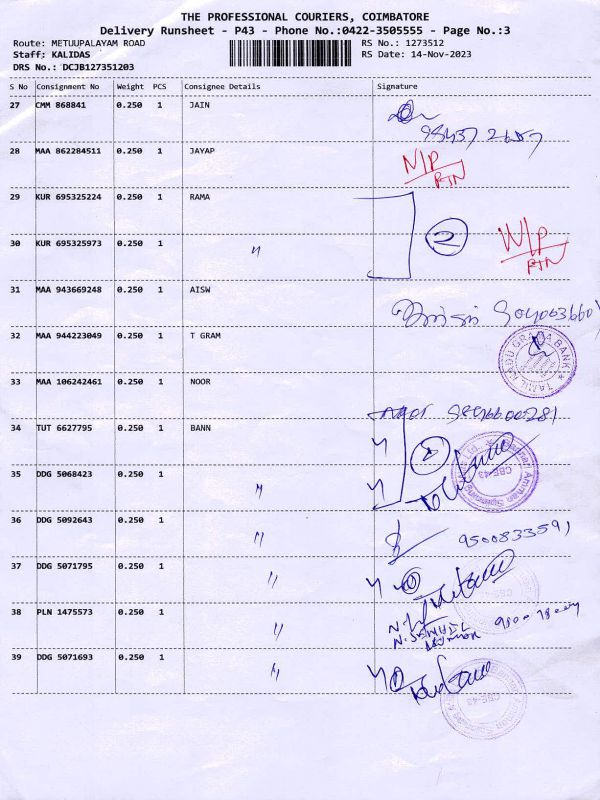 THE PROFESSIONAL COURIERS, COIMBATORE
Delivery Runsheet - P43 - Phone No.:0422-3505555 - Page No.:3
Route: METUUPALAYAM ROAD RS No.: 1273512
Staff: KALIDAS RS Date: 14-Nov-2023
DRS No.: DCJB127351203
S No Consignment No Weight PCS Consignee Details Signature
27 CMM 868841 0.250 1 JAIN
28 MAA 862284511 0.250 1 JAYAP N/P
RTN
29 KUR 695325224 0.250 1 RAMA
2 N/P
30 KUR 695325973 0.250 1 〃 RTN
31 MAA 943669248 0.250 1 AISW
32 MAA 944223049 0.250 1 T GRAM
TAMIL NADU GRAMA BANK
33 MAA 106242461 0.250 1 NOOR
34 TUT 6627795 0.250 1 BANN
35 DDG 5068423 0.250 1 〃
CBE-43
36 DDG 5092643 0.250 1 〃 9500833591
37 DDG 5071795 0.250 1 〃
38 PLN 1475573 0.250 1 〃
39 DDG 5071693 0.250 1 〃
CBE-43